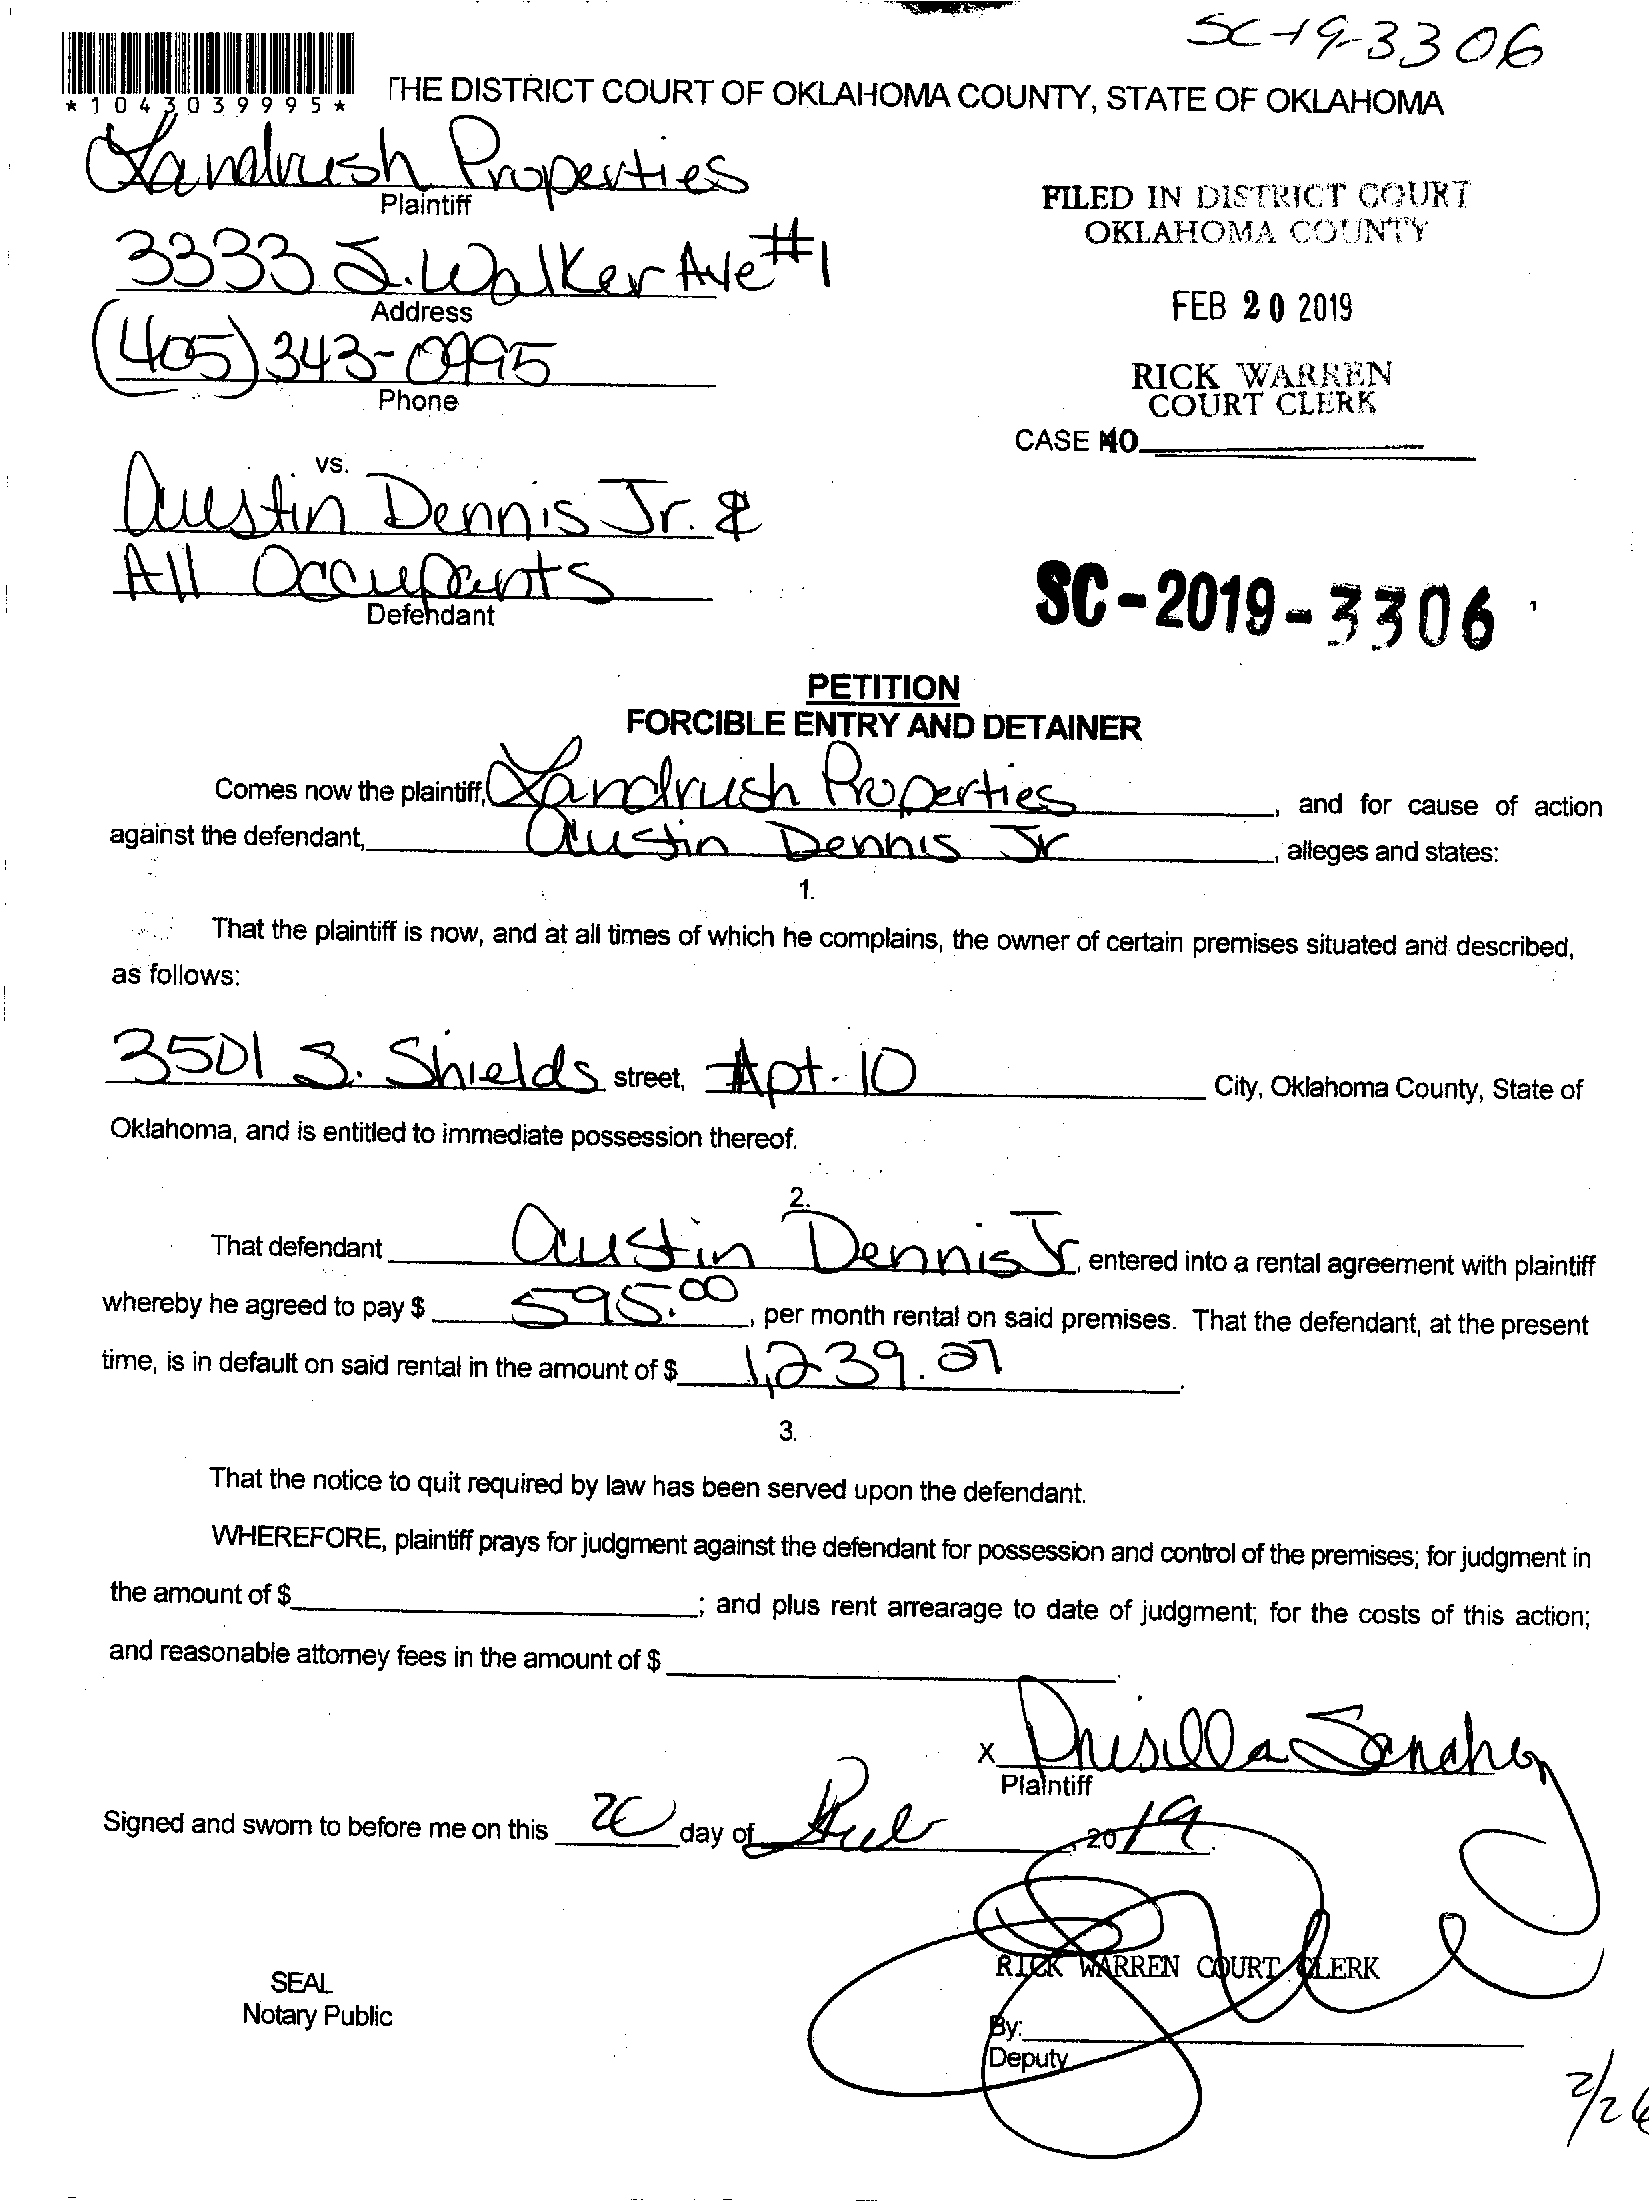 SC-19-3306
*1043039995*
THE DISTRICT COURT OF OKLAHOMA COUNTY, STATE OF OKLAHOMA
Landrush Properties
Plaintiff
3333 S. Walker Ave #1
Address
(405) 343-0995
Phone
FILED IN DISTRICT COURT
OKLAHOMA COUNTY
FEB 20 2019
RICK WARREN
COURT CLERK
CASE NO.
vs.
Austin Dennis Jr. &
All Occupants
Defendant
SC-2019-3306
PETITION
FORCIBLE ENTRY AND DETAINER
Comes now the plaintiff, Landrush Properties, and for cause of action
against the defendant, Austin Dennis Jr, alleges and states:
1.
That the plaintiff is now, and at all times of which he complains, the owner of certain premises situated and described,
as follows:
3501 S. Shields street, Apt. 10 City, Oklahoma County, State of
Oklahoma, and is entitled to immediate possession thereof.
2.
That defendant Austin Dennis Jr, entered into a rental agreement with plaintiff
whereby he agreed to pay $ 595.00, per month rental on said premises. That the defendant, at the present
time, is in default on said rental in the amount of $ 1,239.27.
3.
That the notice to quit required by law has been served upon the defendant.
WHEREFORE, plaintiff prays for judgment against the defendant for possession and control of the premises; for judgment in
the amount of $ ; and plus rent arrearage to date of judgment; for the costs of this action;
and reasonable attorney fees in the amount of $
x Prisilla Sanchez
Plaintiff
Signed and sworn to before me on this 20 day of Feb, 2019.
RICK WARREN COURT CLERK
SEAL
Notary Public
By:
Deputy
2/26